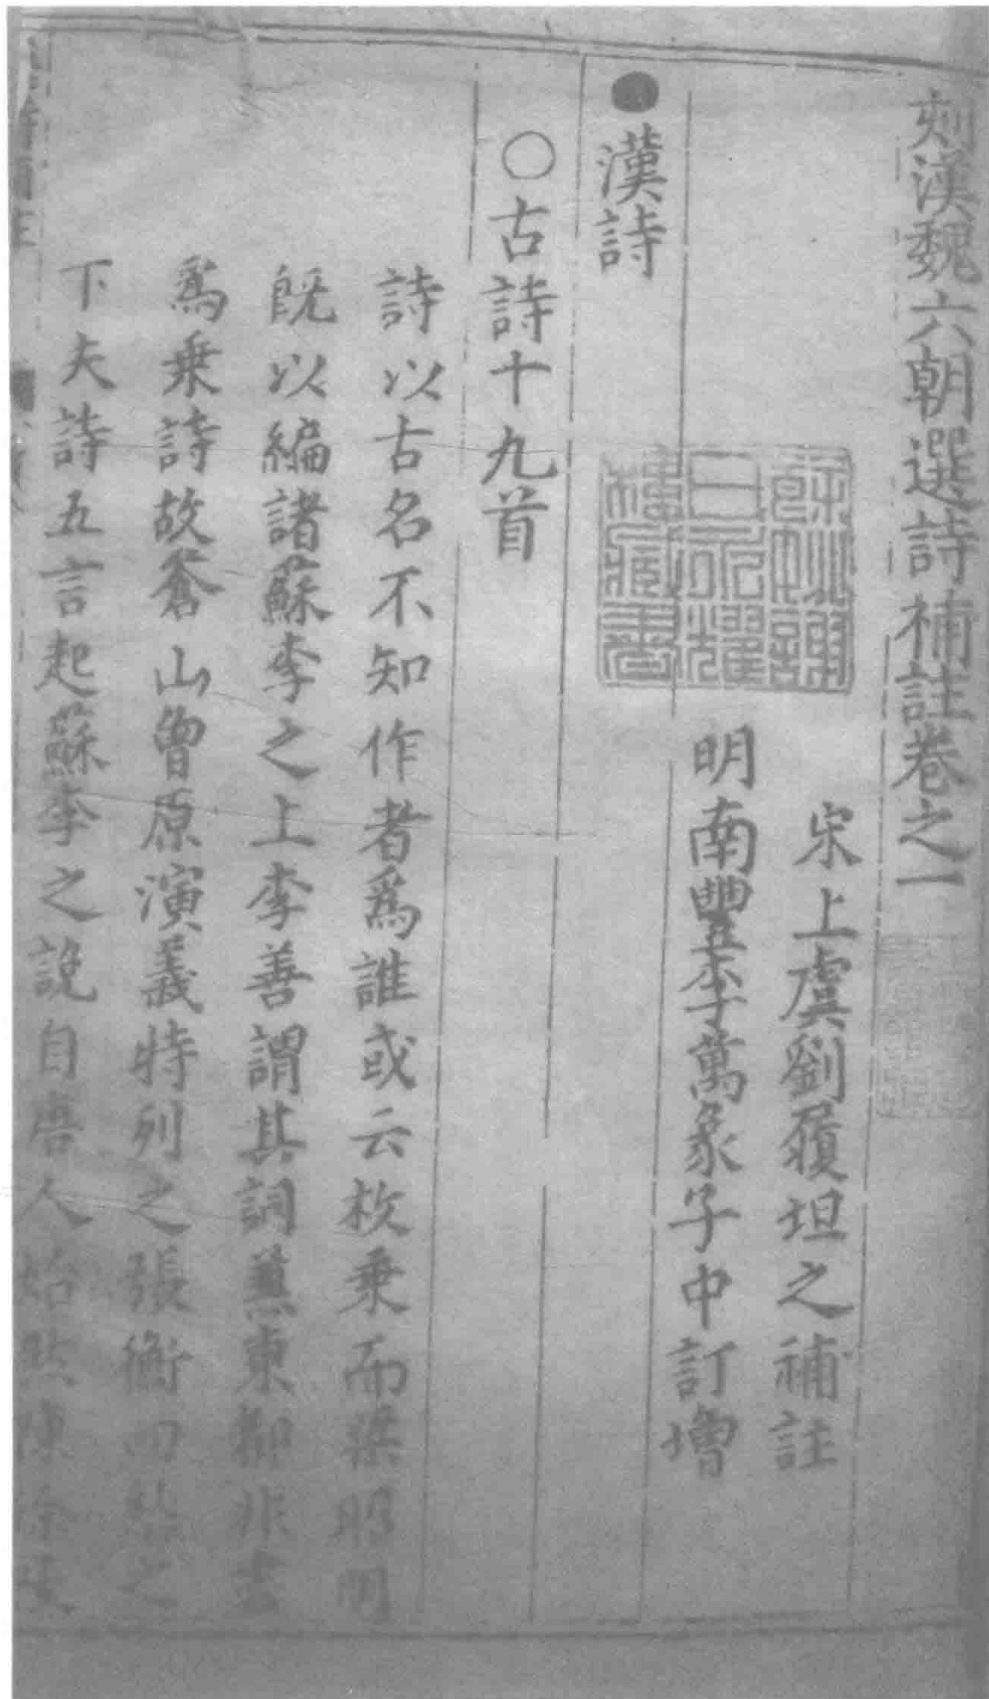 刻漢魏六朝選詩補註卷之一
宋上虞劉履坦之補註
明南豐李萬象子中訂增
餘姚謝
氏永耀
樓藏書
●漢詩
○古詩十九首
詩以古名不知作者爲誰或云枚乗而梁昭明
旣以編諸蘇李之上李善謂其詞兼東都非盡
爲乗詩故蒼山曾原演義特列之張衡四愁之
下夫詩五言起蘇李之說自唐人始然陳徐